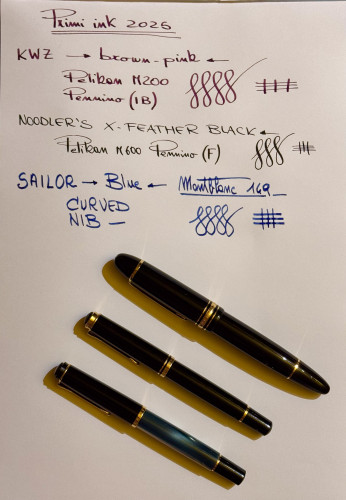 Primi ink 2026
KWZ → brown-pink ←
Pelikan M200
Pennino (IB)
NOODLER'S X-FEATHER BLACK ←
Pelikan M600 Pennino (F)
SAILOR → Blue ← Montblanc 149
CURVED
NIB —